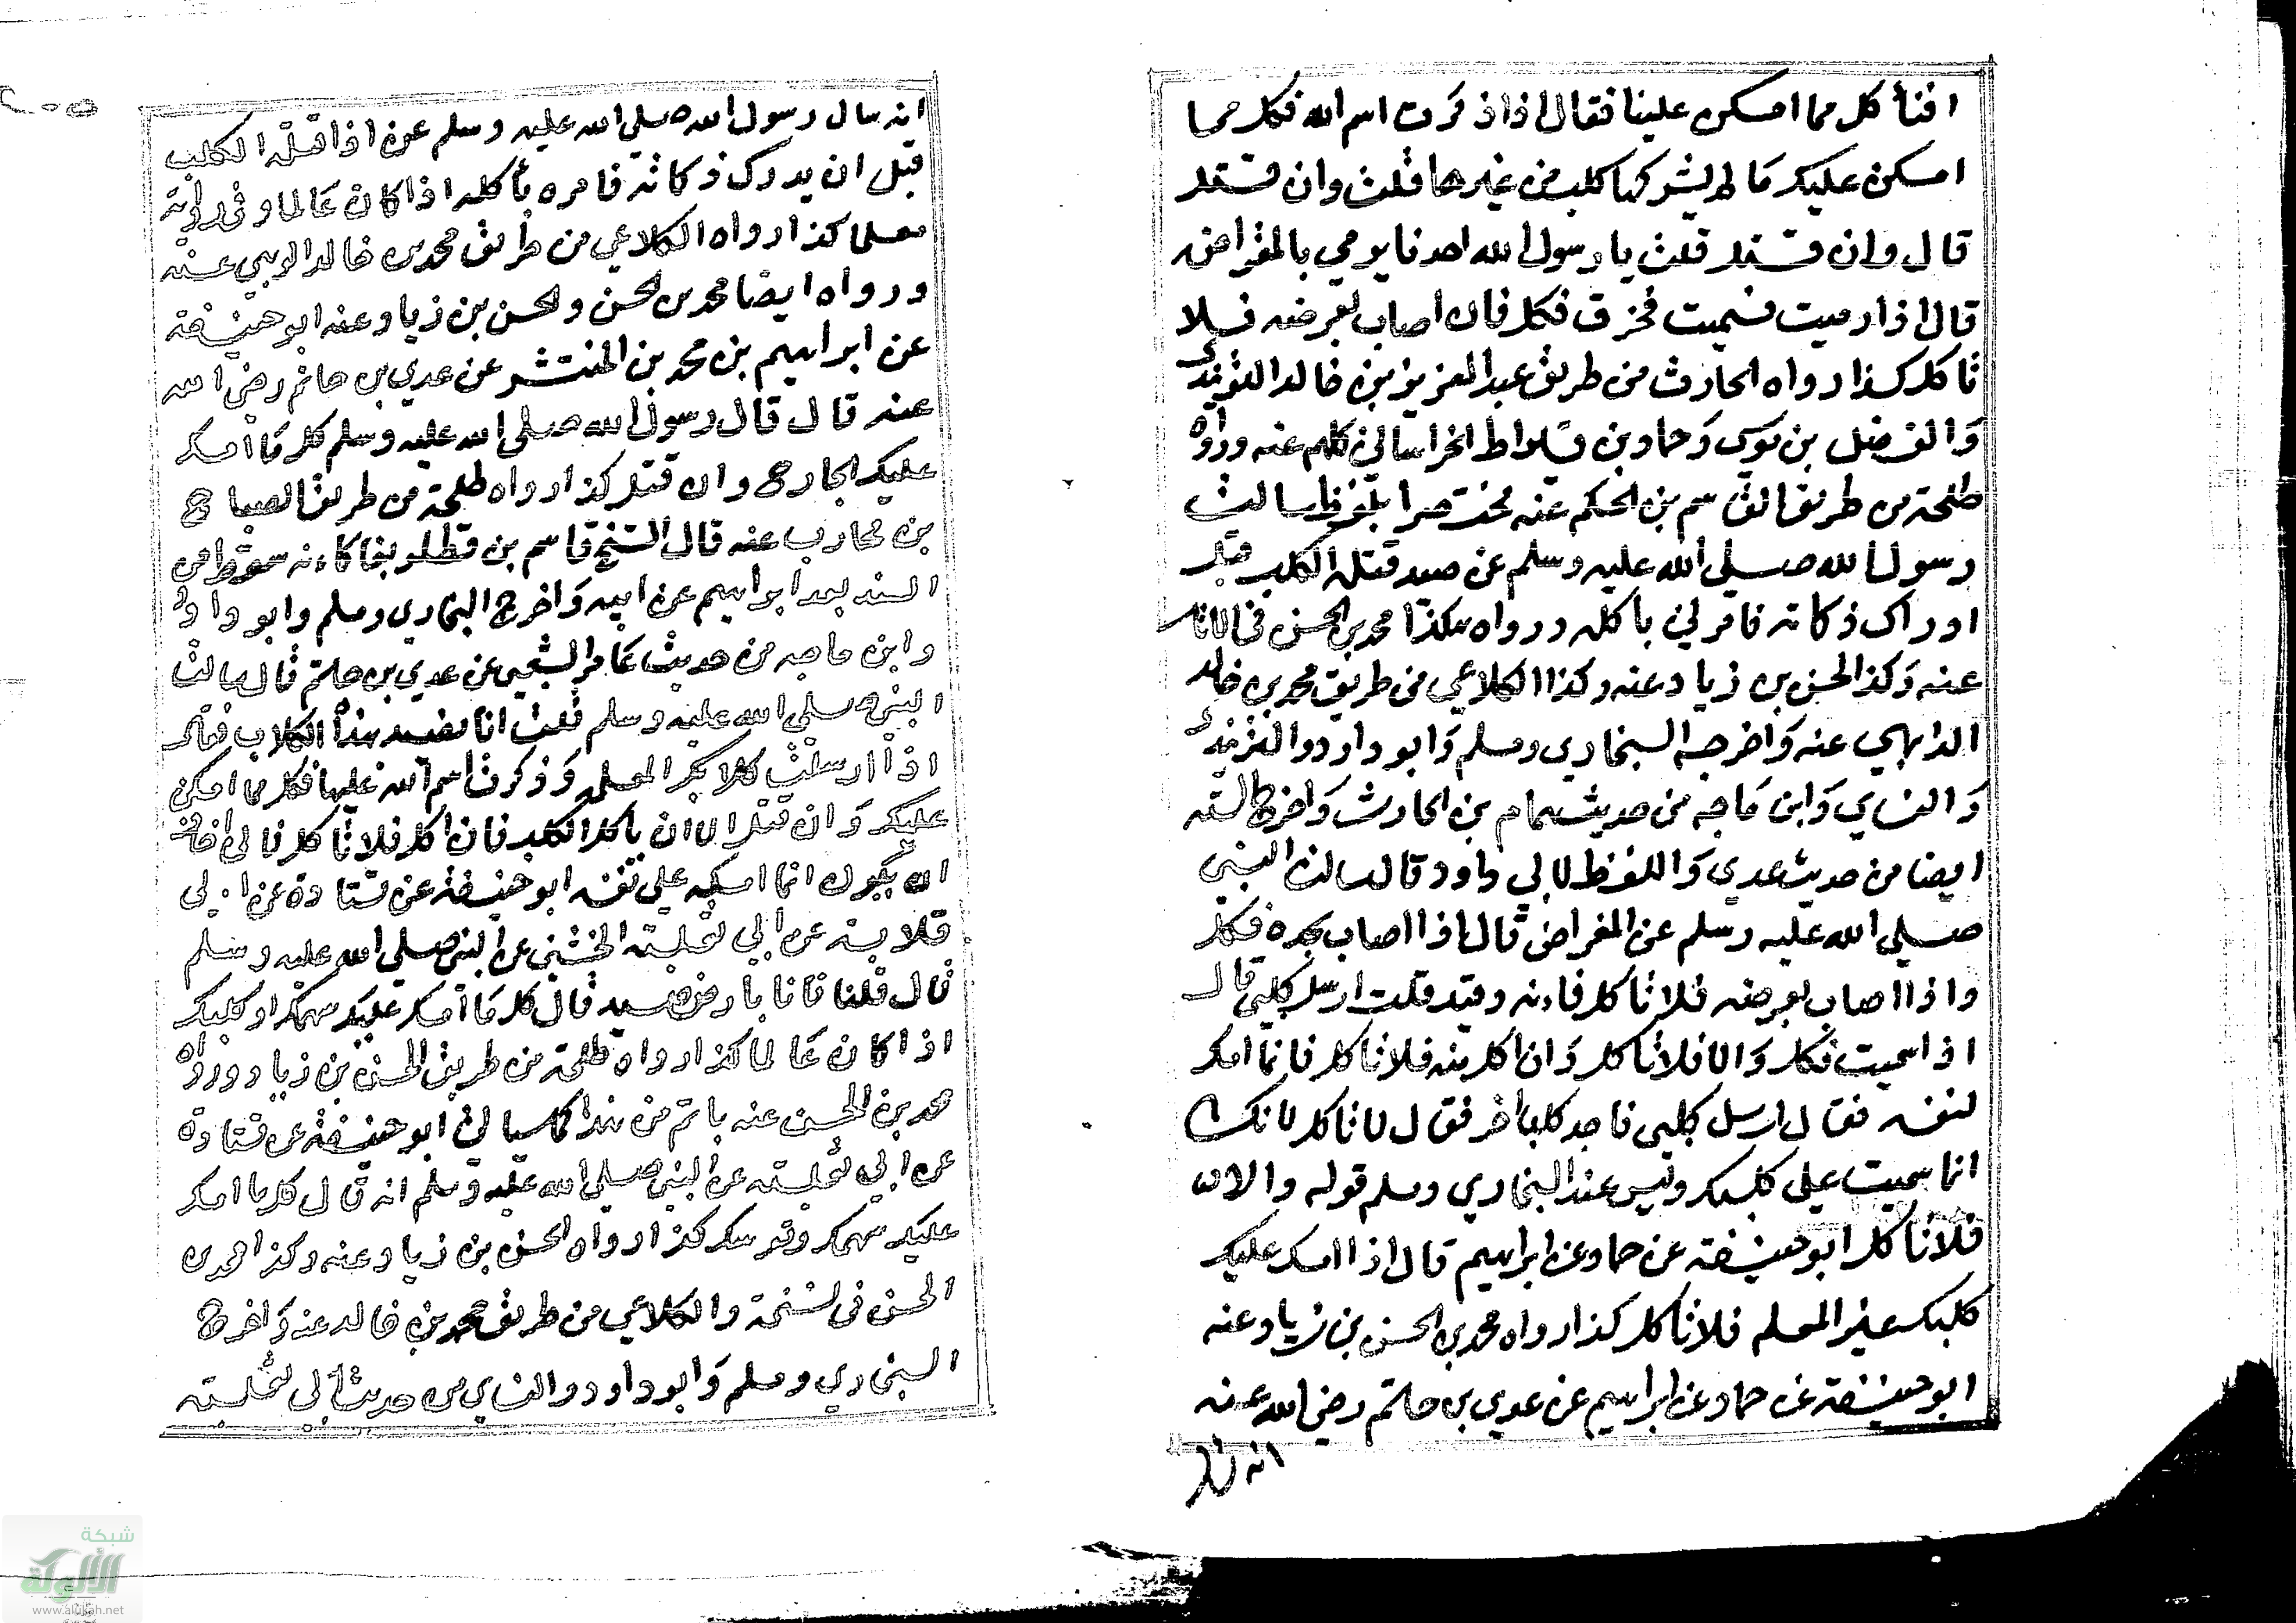 افنأكل مما امسكن علينا فقال اذا ذكرت اسم الله فكل مما
امسكن عليك ما لم يشركها كلب من غيرها قلت وان قتلن
قال وان قتلن قلت يا رسول الله احدنا يرمي بالمعراض
قال اذا رميت فسميت فخزق فكل فان اصاب بعرضه فلا
تاكل كذا رواه الحارث من طريق عبد العزيز بن خالد الترمذي
والفضل بن موسى وحماد بن قيراط الخراساني كلهم عنه ورواه
طلحة من طريق القاسم بن الحكم عنه مختصرا بلفظ سالت
رسول الله صلى الله عليه وسلم عن صيد قتله الكلب قبل
ادراك ذكاته فامرني باكله ورواه هكذا محمد بن الحسن في الاثار
عنه وكذا الحسن بن زياد عنه وكذا الكلاعي من طريق محمد بن خالد
الذاهبي عنه واخرجه البخاري ومسلم وابو داود والترمذي
والنساي وابن ماجه من حديث همام بن الحارث واخرجه الستة
ايضا من حديث عدي واللفظ لابي داود قال سالت النبي
صلي الله عليه وسلم عن المعراض قال اذا اصاب بحده فكل
واذا اصاب بعرضه فلا تاكل فانه وقيذ قلت ارسل كلبي قال
اذا سميت فكل والا فلا تاكل وان اكل منه فلا تاكل فانما امسك
لنفسه فقال ارسل كلبي فاجد كلبا اخر فقال لا تاكل لانك
انما سميت علي كلبك وليس عند البخاري ومسلم قوله والا
فلا تاكل ابو حنيفة عن حماد عن ابراهيم قال اذا امسك عليك
كلبك غير المعلم فلا تاكل كذا رواه محمد بن الحسن بن زياد عنه
ابو حنيفة عن حماد عن ابراهيم عن عدي بن حاتم رضي الله عنه
انه سال
انه سال رسول الله صلي الله عليه وسلم عن اذا قتله الكلب
قبل ان يدرك ذكاته فامره بأكله اذا كان عالما وفي رواية
معلما كذا رواه الكلاعي من طريق محمد بن خالد الوهبي عنه
ورواه ايضا محمد بن الحسن والحسن بن زياد عنه ابو حنيفة
عن ابراهيم بن محمد بن المنتشر عن عدي بن حاتم رضي الله
عنه قال قال رسول الله صلي الله عليه وسلم كل ما امسك
عليك الجارح وان قتل كذا رواه طلحة من طريق الصباح
بن محارب عنه قال الشيخ قاسم بن قطلوبغا كانه سقط من
السند بعد ابراهيم عن ابيه واخرج البخاري ومسلم وابو داود
وابن ماجه من حديث عامر الشعبي عن عدي بن حاتم قال سالت
النبي صلي الله عليه وسلم قلت انا نصيد بهذا الكلاب فقال
اذا ارسلت كلابك المعلمة وذكرت اسم الله عليها فكل مما امسكن
عليك وان قتلن الا ان ياكل الكلب فان اكل فلا تاكل فاني اخاف
ان يكون انما امسكه علي نفسه ابو حنيفة عن قتادة عن ابي
قلابة عن ابي ثعلبة الخشني عن النبي صلي الله عليه وسلم
قال قلنا فانا بارض صيد قال كل ما امسك عليك سهمك او كلبك
اذا كان عالما كذا رواه طلحة من طريق الحسن بن زياد ورواه
محمد بن الحسن عنه باتم من هذا كما سياتي ابو حنيفة عن قتادة
عن ابي ثعلبة عن النبي صلي الله عليه وسلم انه قال كل ما امسك
عليك سهمك وقوسك كذا رواه الحسن بن زياد عنه وكذا محمد بن
الحسن في نسخة والكلاعي من طريق محمد بن خالد عنه واخرج
البخاري ومسلم وابو داود والنساي من حديث ابي ثعلبة
شبكة
الألوكة
www.alukah.net